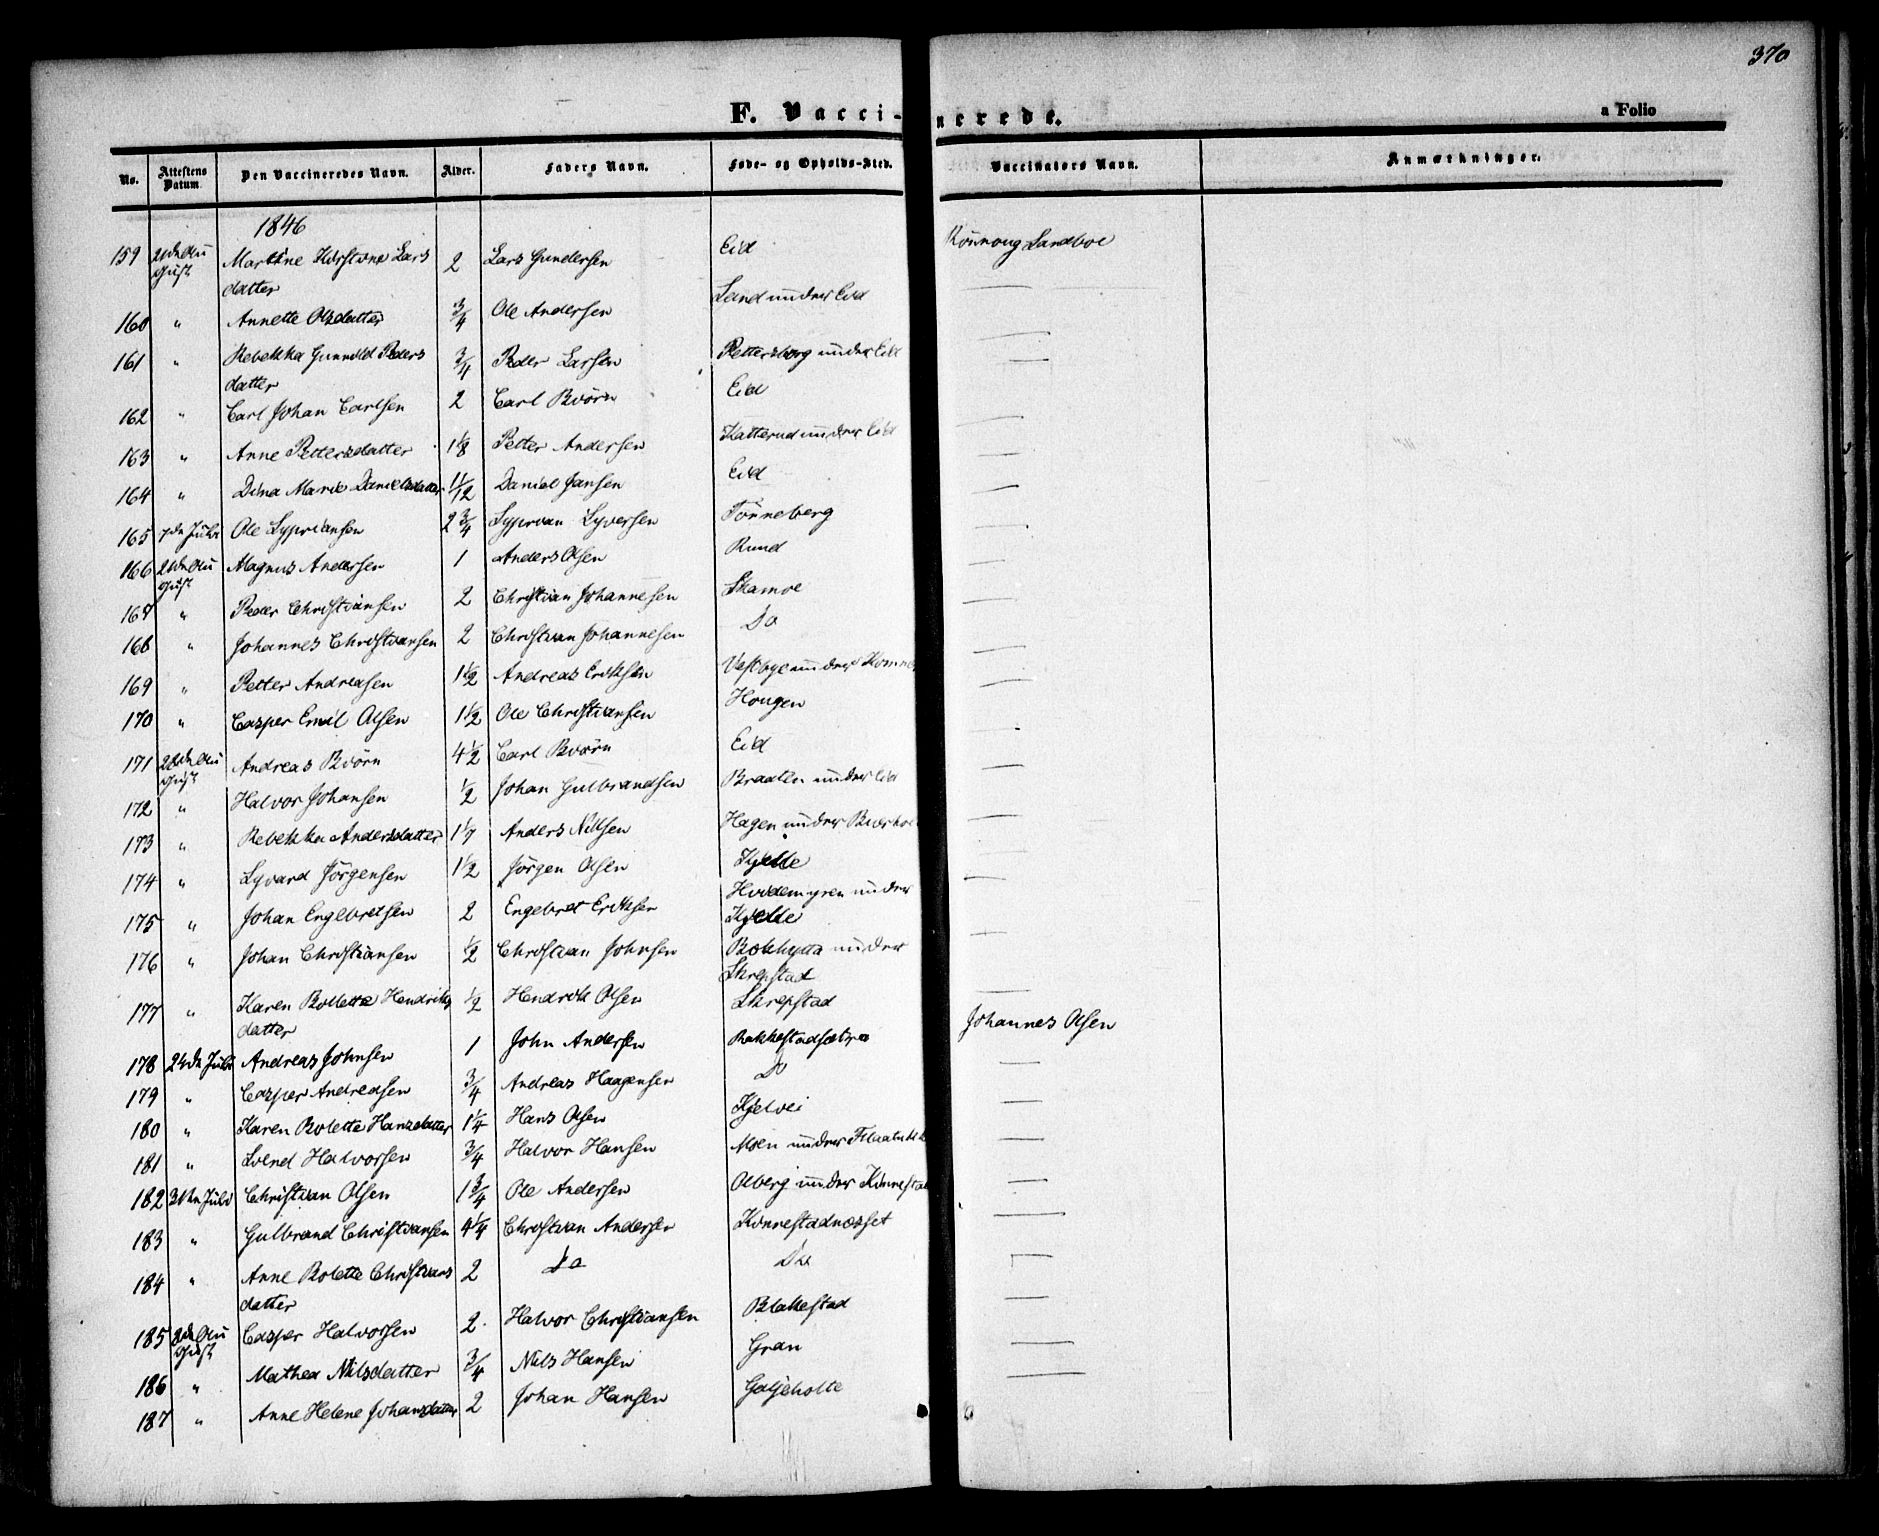 370
F. Vaccinerede.
a Folio
No. Attestens Datum Den Vaccineredes Navn. Alder. Faders Navn. Føde- og Opholds-Sted. Vaccinators Navn. Anmærkninger.
1846
159 Martine Lars datter 2 Lars Gundersen Eid Rönnoug Sandboe
160 " Annette Olsdatter 3/4 Ole Andersen Sand under Eid
161 " Rebekka Gunnild Peders datter 3/4 Peder Larsen Pettersborg under Eid
162 " Carl Johan Carlsen 2 Carl Biörn Eid
163 " Anne Pettersdatter 1 1/8 Petter Andersen Katterud under Eid
164 " Dina Marie Danielsdatter 1 1/12 Daniel Jansen Eid
165 7de Juli Ole Sypriansen 2 3/4 Syprian Syversen Tönneberg
166 August Magnus Andersen 1 Anders Olsen Rund
167 " Peder Christiansen 2 Christian Johannesen Skamoe
168 " Johannes Christiansen 2 Christian Johannesen Do
169 " Petter Andreasen 1 1/2 Andreas Eriksen Vestbye under
170 " Casper Emil Olsen 1 1/2 Ole Christiansen Hougen
171 August Andreas Biörn 4 1/2 Carl Biörn Eid
172 " Halvor Johansen 1/2 Johan Gulbrandsen Braaten under Eid
173 " Rebekka Andersdatter 1 1/7 Anders Nilsen Hagen under
174 " Syvard Jörgensen 1 1/2 Jörgen Olsen Kjelle
175 " Johan Engebretsen 2 Engebret Eriksen under Kjelle
176 " Johan Christiansen 1/2 Christian Johnsen under Skrepstad
177 " Karen Bolette Hendriks datter 1/2 Hendrik Olsen Skrepstad
178 24de Juli Andreas Johnsen 1 John Andersen Rakkestadsætra Johannes Olsen
179 " Casper Andreasen 3/4 Andreas Haagensen Do
180 " Karen Bolette Hansdatter 1 1/4 Hans Olsen Kjelvei
181 " Svend Halvorsen 3/4 Halvor Hansen Moen under
182 31te Juli Christian Olsen 1 3/4 Ole Andersen Olberg under Kinnestad
183 " Gulbrand Christiansen 4 1/4 Christian Andersen Kinnestadnæsset
184 " Anne Bolette Christians datter 2 Do Do
185 August Casper Halvorsen 2 Halvor Christiansen Blakestad
186 " Mathea Nilsdatter 3/4 Nils Hansen Gran
187 " Anne Helene Johansdatter 2 Johan Hansen Galjeholte